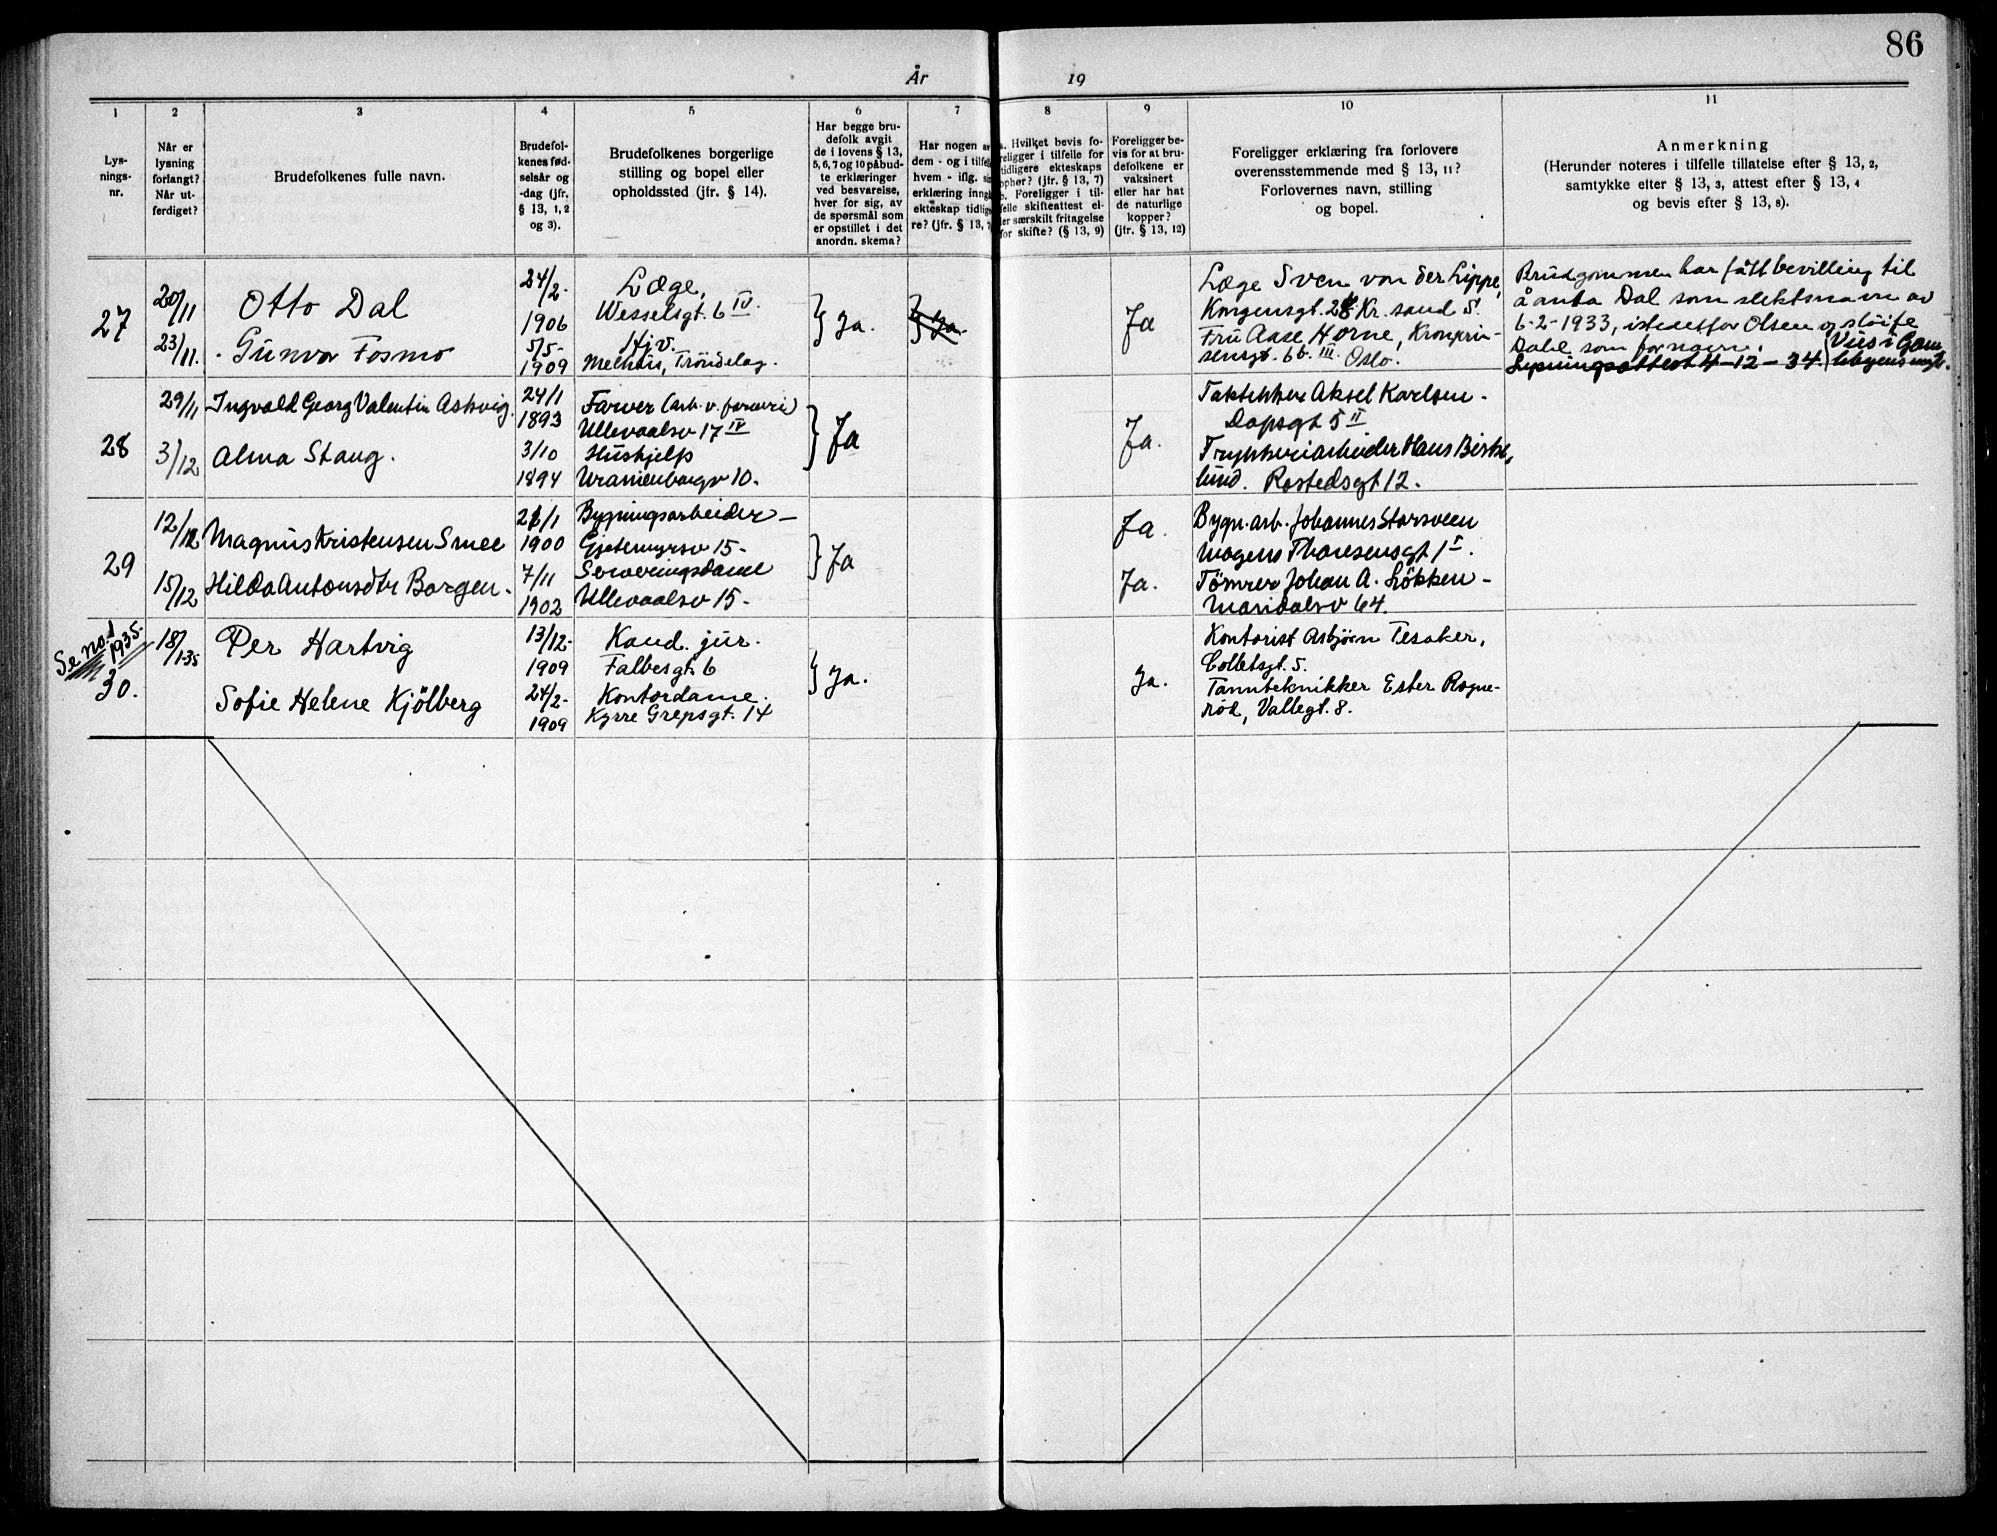 86
År
19
1
2
3
4
5
6
7
8
9
10
11
Lys-
nings-
nr.
Når er
lysning
forlangt?
Når ut-
ferdiget?
Brudefolkenes fulle navn.
Brudefol-
kenes fød-
selsår og
-dag (jfr.
§ 13, 1, 2
og 3).
Brudefolkenes borgerlige
stilling og bopel eller
opholdssted (jfr. § 14).
Har begge bru-
defolk avgit
de i lovens § 13,
5, 6, 7 og 10 påbud-
te erklæringer
ved besvarelse,
hver for sig, av
de spørsmål som
er opstillet i det
anordn. skema?
Har nogen av
dem - og i tilfelle
hvem - iflg. sin
erklæring inngå
ekteskap tidlige
re? (jfr. § 13, 7
a. Hvilket bevis fo-
religger i tilfelle for
tidligere ekteskaps
ophør? (jfr. § 13, 7)
b. Foreligger i til-
felle skifteattest el-
ler særskilt fritagelse
for skifte? (§ 13, 9)
Foreligger be-
vis for at bru-
defolkene er
vaksinert
eller har hat
de naturlige
kopper?
(jfr. § 13, 12)
Foreligger erklæring fra forlovere
overensstemmende med § 13, 11?
Forlovernes navn, stilling
og bopel.
Anmerkning
(Herunder noteres i tilfelle tillatelse efter § 13, 2,
samtykke efter § 13, 3, attest efter § 13, 4
og bevis efter § 13, 8).
27
20/11
23/11.
Otto Dal
Gunvor Fosmo
24/2-
1906
5/5-
1909
Læge,
Wesselsgt. 6 IV.
Hjv.
Melhus, Tröndelag.
} Ja.
} Ja.
Ja
Læge Sven von der Lippe,
Kongensgt. 28 Kr. sand S.
Fru Aase Horne, Kronprin-
sensgt. 6b. III. Oslo.
Brudgommen har fått bevilling til
å anta Dal som slektsnavn av
6-2-1933, istedetfor Olsen og slöife
Dahl som fornavn.
Lysningsattest 4-12-34.
Vies i Gam
28
29/11
3/12
Ingvald Georg Valentin Askvig
Alma Stang.
24/1
1893
3/10
1894
Farver (arb. v. farveri)
Ullevaalsv 17 IV
Hushjelp
Uranienborgv 10.
} Ja
Ja.
Taktekker Aksel Karlsen -
Dopsgt 5 II
Trykkeriarbeider Hans Birke-
lund. Rostedsgt 12.
29
12/12
15/12
Magnus Kristensen Smee
Hilda Antonsdtr Borgen.
1900
7/11
1902
Bygningsarbeider -
Gjetemyrsv 15-
Serveringsdame
Ullevaalsv 15-
} Ja
Ja.
Ja.
Bygn. arb. Johannes Storsveen
Mogens Thoresensgt 1 I.
Tømrer Johan A. Løkken -
Maridalsv 64.
Se no. 1
1935.
30.
18/1-35
Per Hartvig
Sofie Helene Kjölberg
13/12-
1909
24/2-
1909
Kand. jur.
Falbesgt. 6
Kontordame.
Kyrre Grepsgt. 14
} Ja.
Ja.
Kontorist Asbjørn Tesaker,
Colletsgt. 5.
Tannteknikker Ester Rogne-
röd, Vallegt. 8.